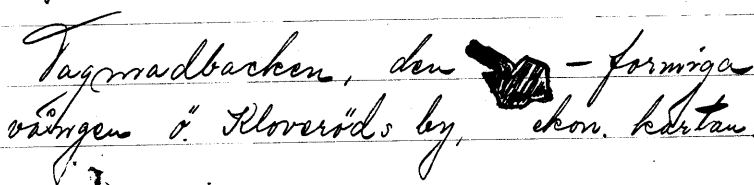 Tagmadbacken, den – formiga
vången ö. Kloveröds by, ekon. kartan.